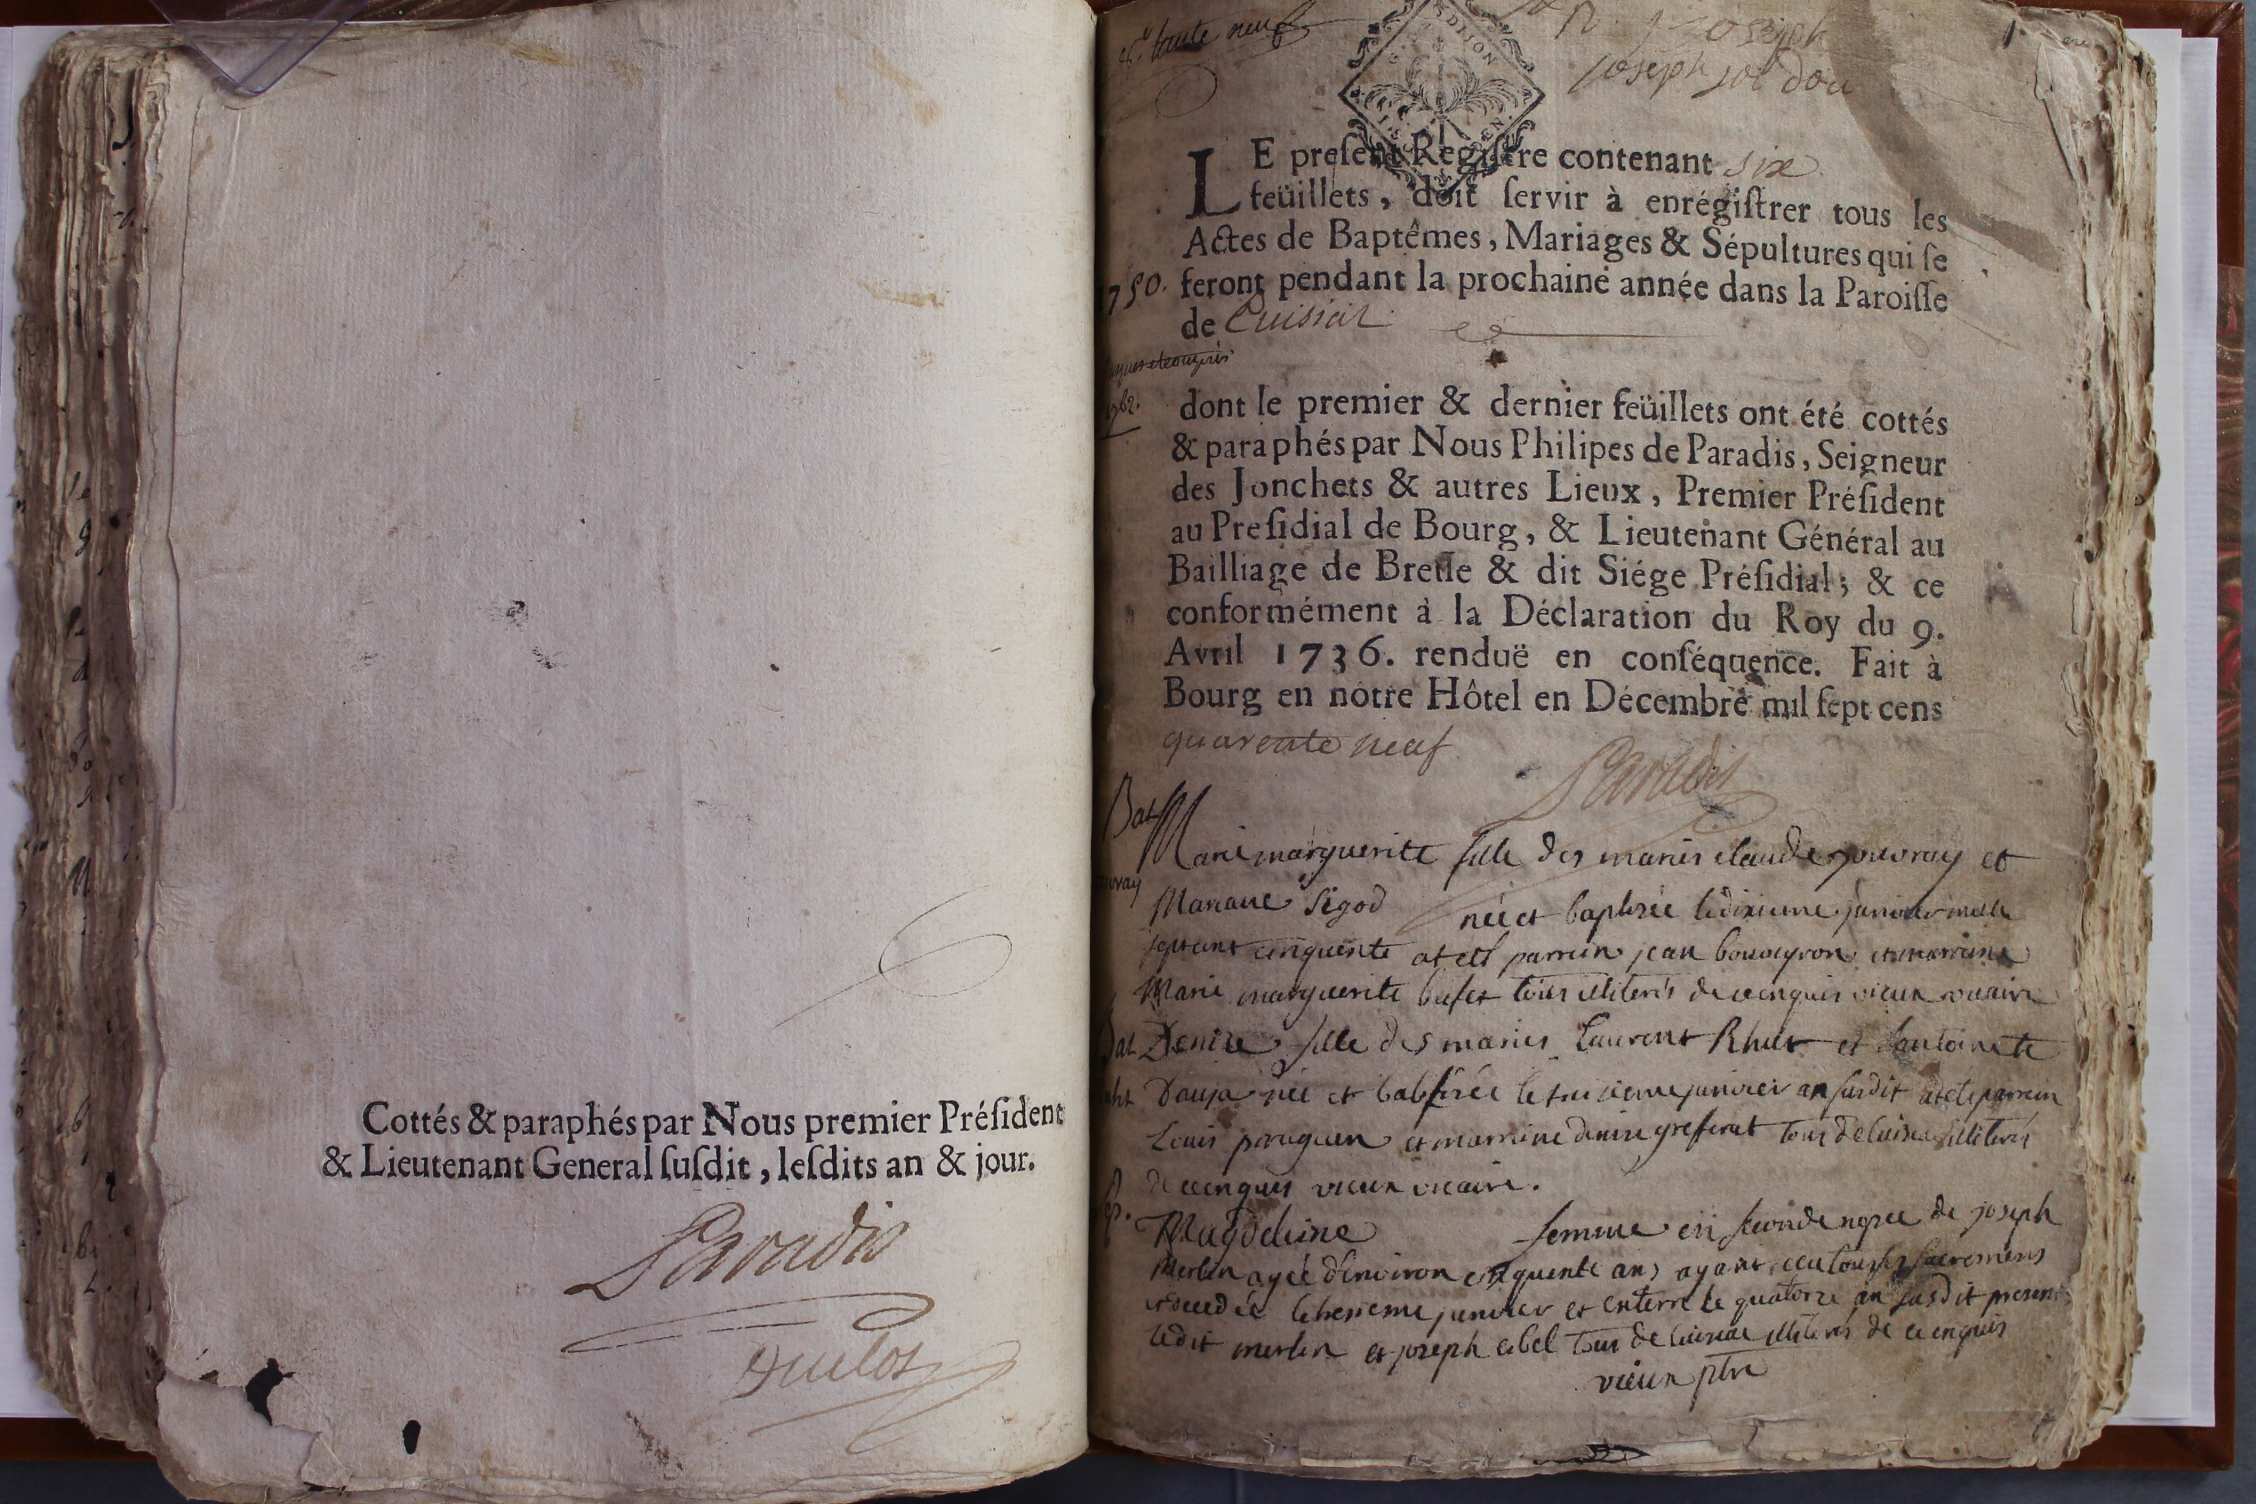 Cottés & paraphés par Nous premier Présiden
& Lieutenant General susdit, lesdits an & jour.
Paradis
Duclos
trente neuf
joseph
joseph
LE present Registre contenant six
feüillets, doit servir à enrégistrer tous les
Actes de Baptêmes, Mariages & Sépultures qui se
1750. feront pendant la prochaine année dans la Paroisse
de Cuisiat
dont le premier & dernier feüillets ont été cottés
& paraphés par Nous Philipes de Paradis, Seigneur
des Jonchets & autres Lieux, Premier Président
au Presidial de Bourg, & Lieutenant Général au
Bailliage de Bresse & dit Siége Présidial; & ce
conformément à la Déclaration du Roy du 9.
Avril 1736. renduë en conséquence. Fait à
Bourg en notre Hôtel en Décembre mil sept cens
quarente neuf
Paradis
Bat
Marie marguerite fille des mariés claude et
Mariane Sigod née et baptisée le dixieme janvier mille
septcent cinquente at eté parrain jean et marraine
Marie marguerite bufet tous illiterés vieux vicaire
Bat Denize fille des mariés Laurent Rhut et antoinete
née et babtisée le janvier an susdit at eté parrain
Louis et marraine denize tous de Cuisiat illiterés
vieux vicaire.
Magdeleine femme en seconde de joseph
Merlin agée d'environ cinquente ans ayant receu tous les sacremens
decedée le janvier et enterré le quatorze an susdit present
ledit merlin et joseph tous de Cuisiat illiterés
vieux ptre